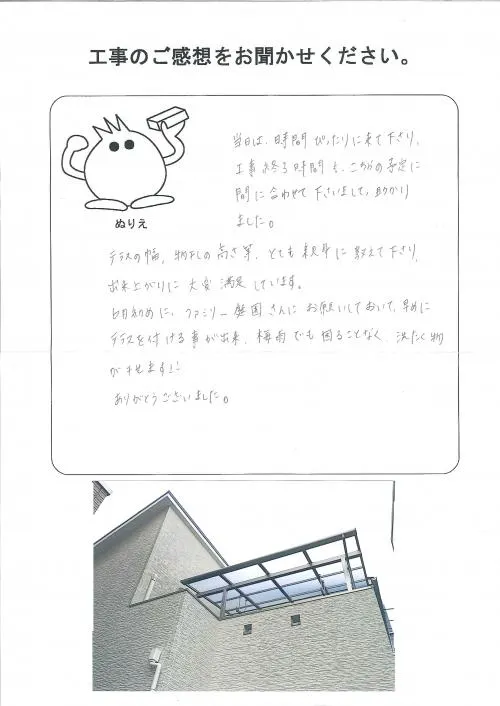 工事のご感想をお聞かせください。
当日は、時間ぴったりに来て下さり、
工事終了時間も、こちらの予定に
間に合わせて下さいまして、助かり
ました。
ぬりえ
テラスの幅、物干しの高さ等、とても親身に教えて下さり、
出来上がりに大変満足しています。
6月初めに、ファミリー庭園さんにお願いしておいて、早めに
テラスを付ける事が出来、梅雨でも困ることなく、洗たく物
が干せます!!
ありがとうございました。